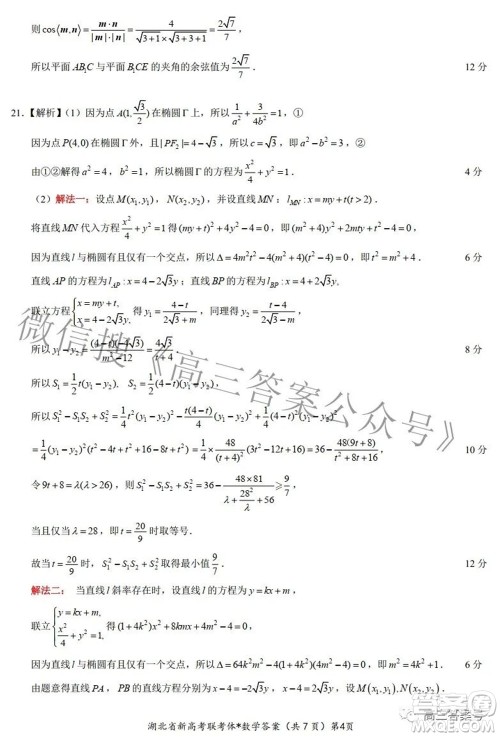 则 cos⟨m,n⟩ = m·n / |m|·|n| = 4 / (√(3+1) × √(3+3+1)) = 2√7/7,
所以平面 AB₁C 与平面 B₁CE 的夹角的余弦值为 2√7/7. 12 分
21.【解析】(1) 因为点 A(1, √3/2) 在椭圆 Γ 上，所以 1/a² + 3/4b² = 1, ①
因为点 P(4,0) 在椭圆 Γ 外，且 |PF₂| = 4−√3，所以 c=√3，即 a²−b²=3, ②
由①②解得 a²=4, b²=1，所以 Γ 的方程为 x²/4 + y² = 1. 4 分
(2) 解法一：设点 M(x₁,y₁), N(x₂,y₂)，并设直线 MN: l_MN: x=my+t(t>2).
将直线 MN 代入方程 x²/4 + y² = 1 得 (my+t)²+4y²−4=0，即 (m²+4)y²+2mty+t²−4=0, 6 分
因为直线 l 与椭圆有且仅有一个交点，所以 Δ=4m²t²−4(m²+4)(t²−4)=0，即 t²=m²+4.
直线 AP 的方程为 l_AP: x=4−2√3y；直线 BP 的方程为 l_BP: x=4+2√3y,
联立方程 {x=my+t, x=4−2√3y, 得 y₁=(4−t)/(2√3+m)，同理得 y₂=(t−4)/(2√3−m),
所以 y₁−y₂=(4−t)(−4√3)/(m²−12)=4√3/(t+4). 8 分
所以 S₁=½t(y₁−y₂), S₂=½(4−t)(y₁−y₂),
所以 S₁²−S₁S₂+S₂²=(y₁−y₂)²[¼t²−t(4−t)/4+¼(4−t)²]
=¼(y₁−y₂)²[t²−4t+t²+16−8t+t²]=¼×48/(t+4)²(3t²−12t+16)=36−48(9t+8)/(t²+8t+16) 10 分
令 9t+8=λ(λ>26)，则 S₁²−S₁S₂+S₂²=36−48×81/(λ+28²/λ+56)≥9/7,
当且仅当 λ=28，即 t=20/9 时取等号.
故当 t=20/9 时，S₁²−S₁S₂+S₂² 取得最小值 9/7. 12 分
解法二：当直线 l 斜率存在时，设 l 的方程为 y=kx+m,
联立 {y=kx+m, x²/4+y²=1, 得 (1+4k²)x²+8kmx+4m²−4=0,
因为直线 l 与椭圆有且仅有一个交点，所以 Δ=64k²m²−4(1+4k²)(4m²−4)=0，即 4k²+1=m². 6 分
由题意得直线 PA，PB 的方程分别为 x=4−2√3y, x=4+2√3y，设 M(x₁,y₁), N(x₂,y₂),
湖北省新高考联考体*数学答案（共 7 页）第4页
微信搜《高三答案公众号》
高三答案号